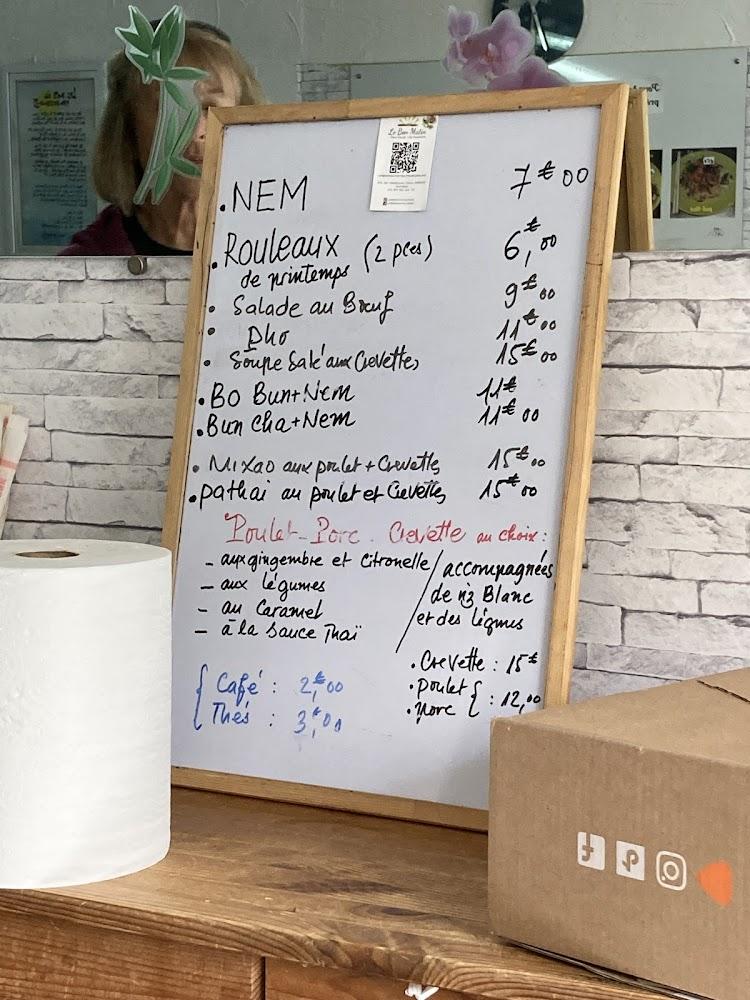 Le Bon Matin
• NEM 7€00
• Rouleaux (2 pces) 6,€00
de printemps
• Salade au Bœuf 9€00
• Pho 11€00
• Soupe Salé aux Crevettes 15€00
• Bo Bun+Nem 11€
• Bun Cha+Nem 11€00
• Mixao aux poulet + Crevettes 15€00
• pathai au poulet et Crevettes 15€00
Poulet - Porc - Crevette au choix :
- aux gingembre et Citronelle / accompagnées
- aux légumes de riz Blanc
- au Caramel et des légmus
- à la sauce Thaï
• Crevette : 15€
• poulet { : 12,00
• porc
{ Café : 2,€00
Thés : 3,€00